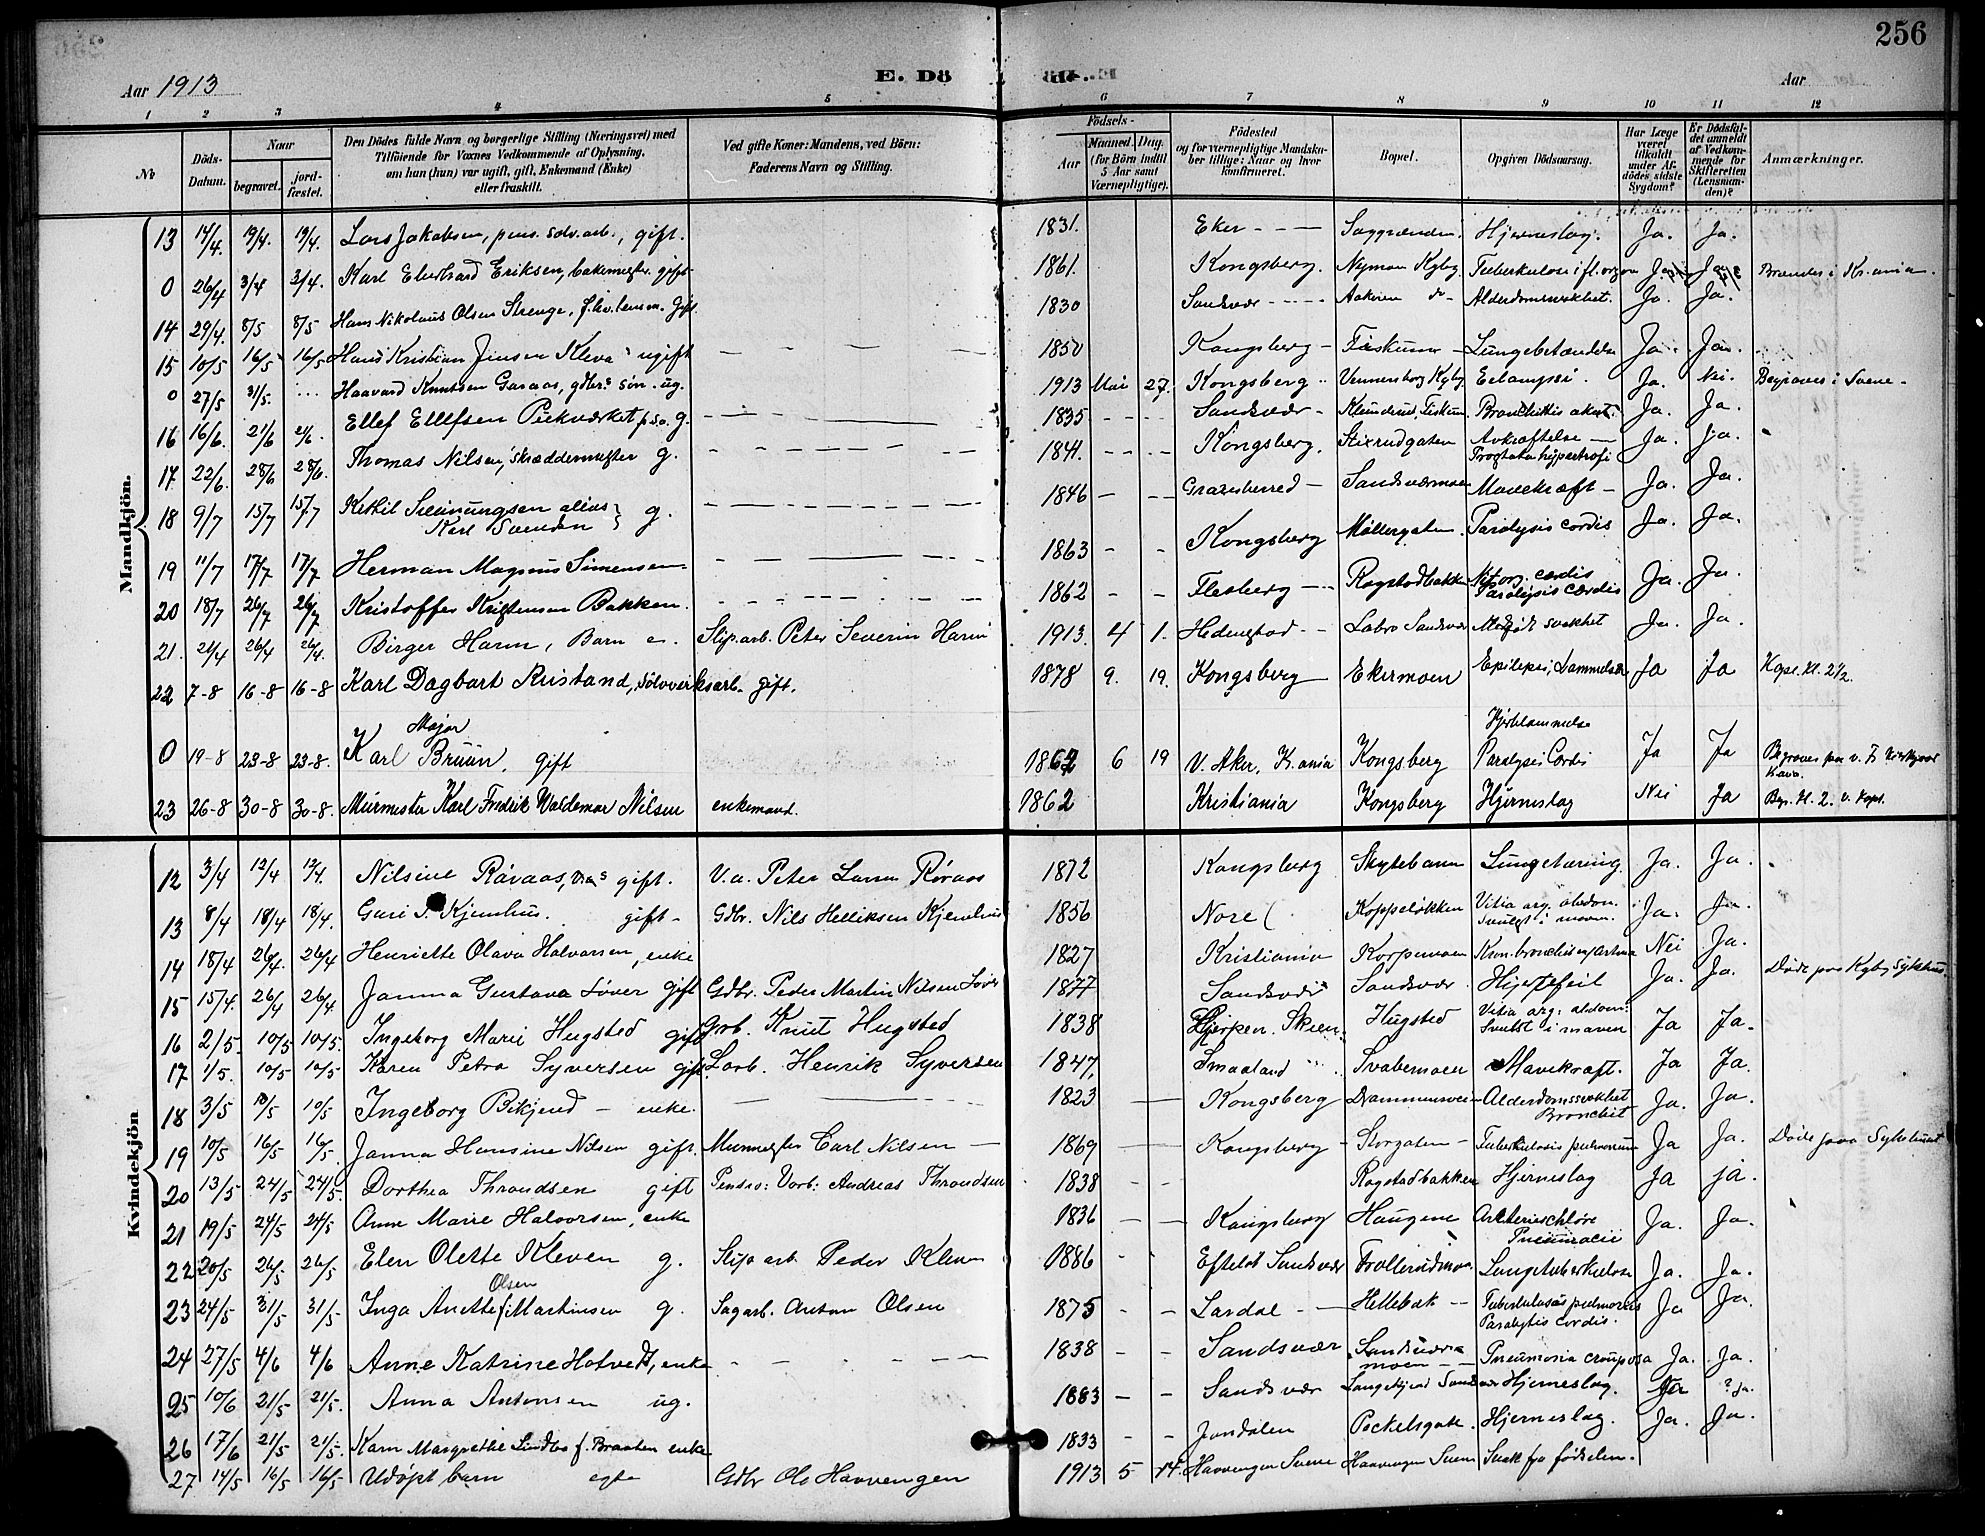 256
Aar 1913
E. Dö
Aar
1 2 3 4 5 6 7 8 9 10 11 12
No
Döds-Datum.
Naar
begravet.
jordfæstet.
Den Dödes fulde Navn og borgerlige Stilling (Næringsvei) med
Tilföiende for Voxnes Vedkommende af Oplysning,
om han (hun) var ugift, gift, Enkemand (Enke)
eller fraskilt.
Ved gifte Koner: Mandens, ved Börn:
Faderens Navn og Stilling.
Födsels-
Aar
Maaned. Dag.
(for Börn indtil
5 Aar samt
Værnepligtige).
Födested
og for værnepligtige Mandskaber tillige: Naar og hvor
konfirmeret.
Bopæl.
Opgiven Dödsaarsag.
Har Læge været tilkaldt under Afdödes sidste Sygdom?
Er Dödsfaldet anmeldt af Vedkommende for Skifteretten (Lensmanden)?
Anmærkninger.
Mandkjön.
13 14/4. 19/4. 19/4. Lars Jakobsen, pens. sölv.arb., gift. 1831. Eker Saggrenden. Hjerneslag. Ja. Ja.
0 26/4 3/4 3/4. Karl Eberhard Eriksen, bakermester. gift 1861. Kongsberg. Nymoen Kgbg. Tuberkulose i fl. organ Ja Ja Brændes i Kr.ania.
14 29/4. 8/5 8/5 Hans Nikolaus Olsen Strenge, Gift 1830 Sandsvær Alderdomssvakhet. Ja. Ja.
15 10/5 16/5 16/5 Hans Kristian Jensen Kleva ugift 1850 Kongsberg Fiskum Lungebetændelse Ja. Ja.
0 27/5 31/5. Haavard Knutsen Garaas, gdbrs søn. ug. 1913 Mai 27. Kongsberg Vennersborg Kgbg Eclampsi. Ja. Nei. Begraves i Svene
16 16/6. 21/6 21/6. Ellef Ellefsen Pukværket p.s.a. g. 1835 Sandsvær Fiskum Bronchitis akut. Ja. Ja.
17 22/6. 28/6 28/6. Thomas Nilsen, skræddermester g. 1841. Kongsberg. Stierudgaten Avkræftelse Prostatahypertrofi Ja. Ja.
18 9/7 15/7 15/7 Ketil Steinungsen alias Karl Svendsen g. 1846 Gransherred Sandsværmoen Mavekræft Ja. Ja.
19 11/7 17/7 17/7 Herman Magnus Simensen 1863 Kongsberg Møllergaten Paralysis cordis Ja. Ja.
20 18/7 26/7 26/7 Kristoffer Kristensen Bakken. 1862 Flesberg Rogstadbakken Vit. org. cordis Paralysis cordis Ja. Ja.
21. 21/4 26/4 26/4. Birger Harm, Barn e. Slip.arb. Peter Severin Harm 1913. 4 1. Hedenstad Labro Sandsvær Medfødt svakhet Ja. Ja.
22 7-8 16-8 16-8 Karl Dagbart Ruistand, Sølvverksarb. gift. 1878 9. 19. Kongsberg Ekermoen Epilepsi, Lammelse Ja Ja Kapl. Kl. 2½.
0 19-8 23-8 23-8. Major Karl Bruun, gift 1862 6 19 V. Aker, Kr.ania Kongsberg Hjertelammelse Paralysis Cordis Ja Ja Begraves paa v. Fr. Kirkegaard
23 26-8 30-8 30-8. Murmester Karl Fredrik Waldemar Nilsen enkemand. 1862 Kristiania Kongsberg Hjerneslag Nei Ja Beg. Kl. 2. v. Kapl.
Kvindekjön
12 3/4 12/4 12/4. Nilsine Røraas, gift. V.a. Peter Larsen Røraas 1872 Kongsberg Skytebanen Lungetæring Ja. Ja.
13 8/4 18/4 18/4. Guri Kjemhus. gift Gdbr. Nils Helliksen Kjemhus 1856 Nore Koppeløkken Vitia org. abdom. Svulst i maven. Ja. Ja.
14 18/4 26/4. 26/4 Henriette Olava Halvorsen, enke 1827 Kristiania Korpemoen Kron. bronchit m/Astma Nei Ja.
15 15/4. 26/4 26/4. Janna Gustava Løver gift Gdbr. Peder Martin Nilsen Løver 1877 Sandsvær Sandsvær Hjertefeil Ja. Ja. Døde paa Kgbg Sykehus.
16 2/5. 10/5 10/5. Ingeborg Marie Hugsted gift Grb. Knut Hugsted 1838 Gjerpen. Skien. Hugsted Vitia org. abdom: Svulst i maven Ja Ja.
17 1/5. 10/5 10/5. Karen Petra Syversen gift. S.arb. Henrik Syversen 1847, Smaaland Svabemoen Mavekræft. Ja Ja.
18 3/5 10/5 10/5. Ingeborg Bikjend enke. 1823 Kongsberg Drammensvei Alderdomssvakhet Bronchit Ja. Ja.
19 10/5 16/5 16/5. Janna Hansine Nilsen gift. Murmester Carl Nilsen 1869 Kongsberg Storgaten Tuberkulosis pulmonum Ja Ja. Døde paa Sykehuset
20 13/5 24/5 24/5. Dorthea Throndsen gift Pensio: Varb: Andreas Throndsen 1838 Rogstadbakken Hjerneslag Ja ja.
21 19/5 24/5 24/5. Anne Marie Halvorsen, enke 1836 Kongsberg Haugene Pneumonie Ja. Ja.
22 20/5 26/5 26/5. Elen Olette Kleven g. Slip arb Peder Kleven 1886 Efteløt Sandsvær Trollerudmoen Lungetuberkulose Ja. Ja.
23 24/5 31/5 31/5. Inga Anette Olsen f. Martinsen g. Sagarb. Anton Olsen 1875 Lardal Hellebæk Tuberkulosis pulmonis Paralysis cordis. Ja Ja.
24 27/5 4/6 4/6 Anne Katrine Hotvedt, enke 1838 Sandsvær Sandsværmoen Pneumonia crouposa Ja. Ja.
25 10/6 21/5 21/5. Anna Antonsen ug. 1883 Sandsvær Hjerneslag. Ja ? Ja.
26 17/6 21/5 21/5. Karen Margrethe Lindbo f. Braaten enke 1833 Jondalen Peckelsgate. Hjerneslag. Ja. Ja.
27 14/5 16/5 16/5 Udöpt barn egte Gdbr Ole Haavengen 1913 5 14. Haavengen Svene Haavengen Svene Svak fra fødselen.